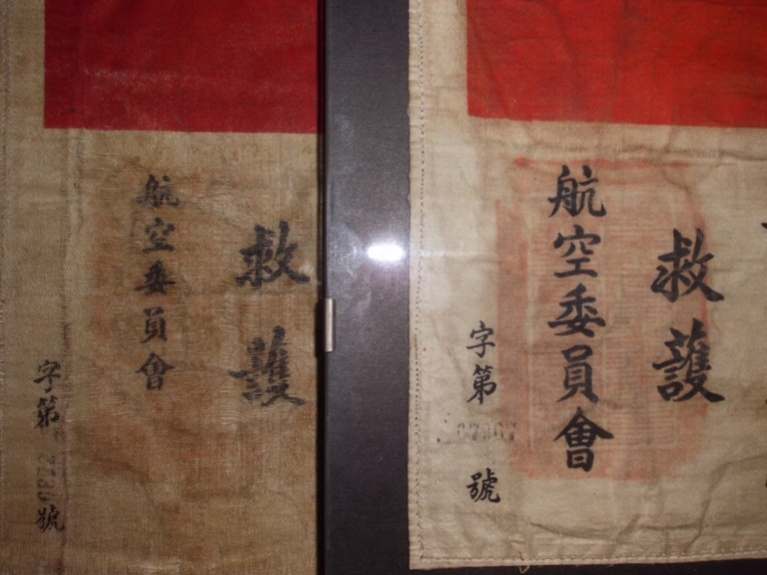 救護
航空委員會
字第 號
救護
航空委員會
字第 號